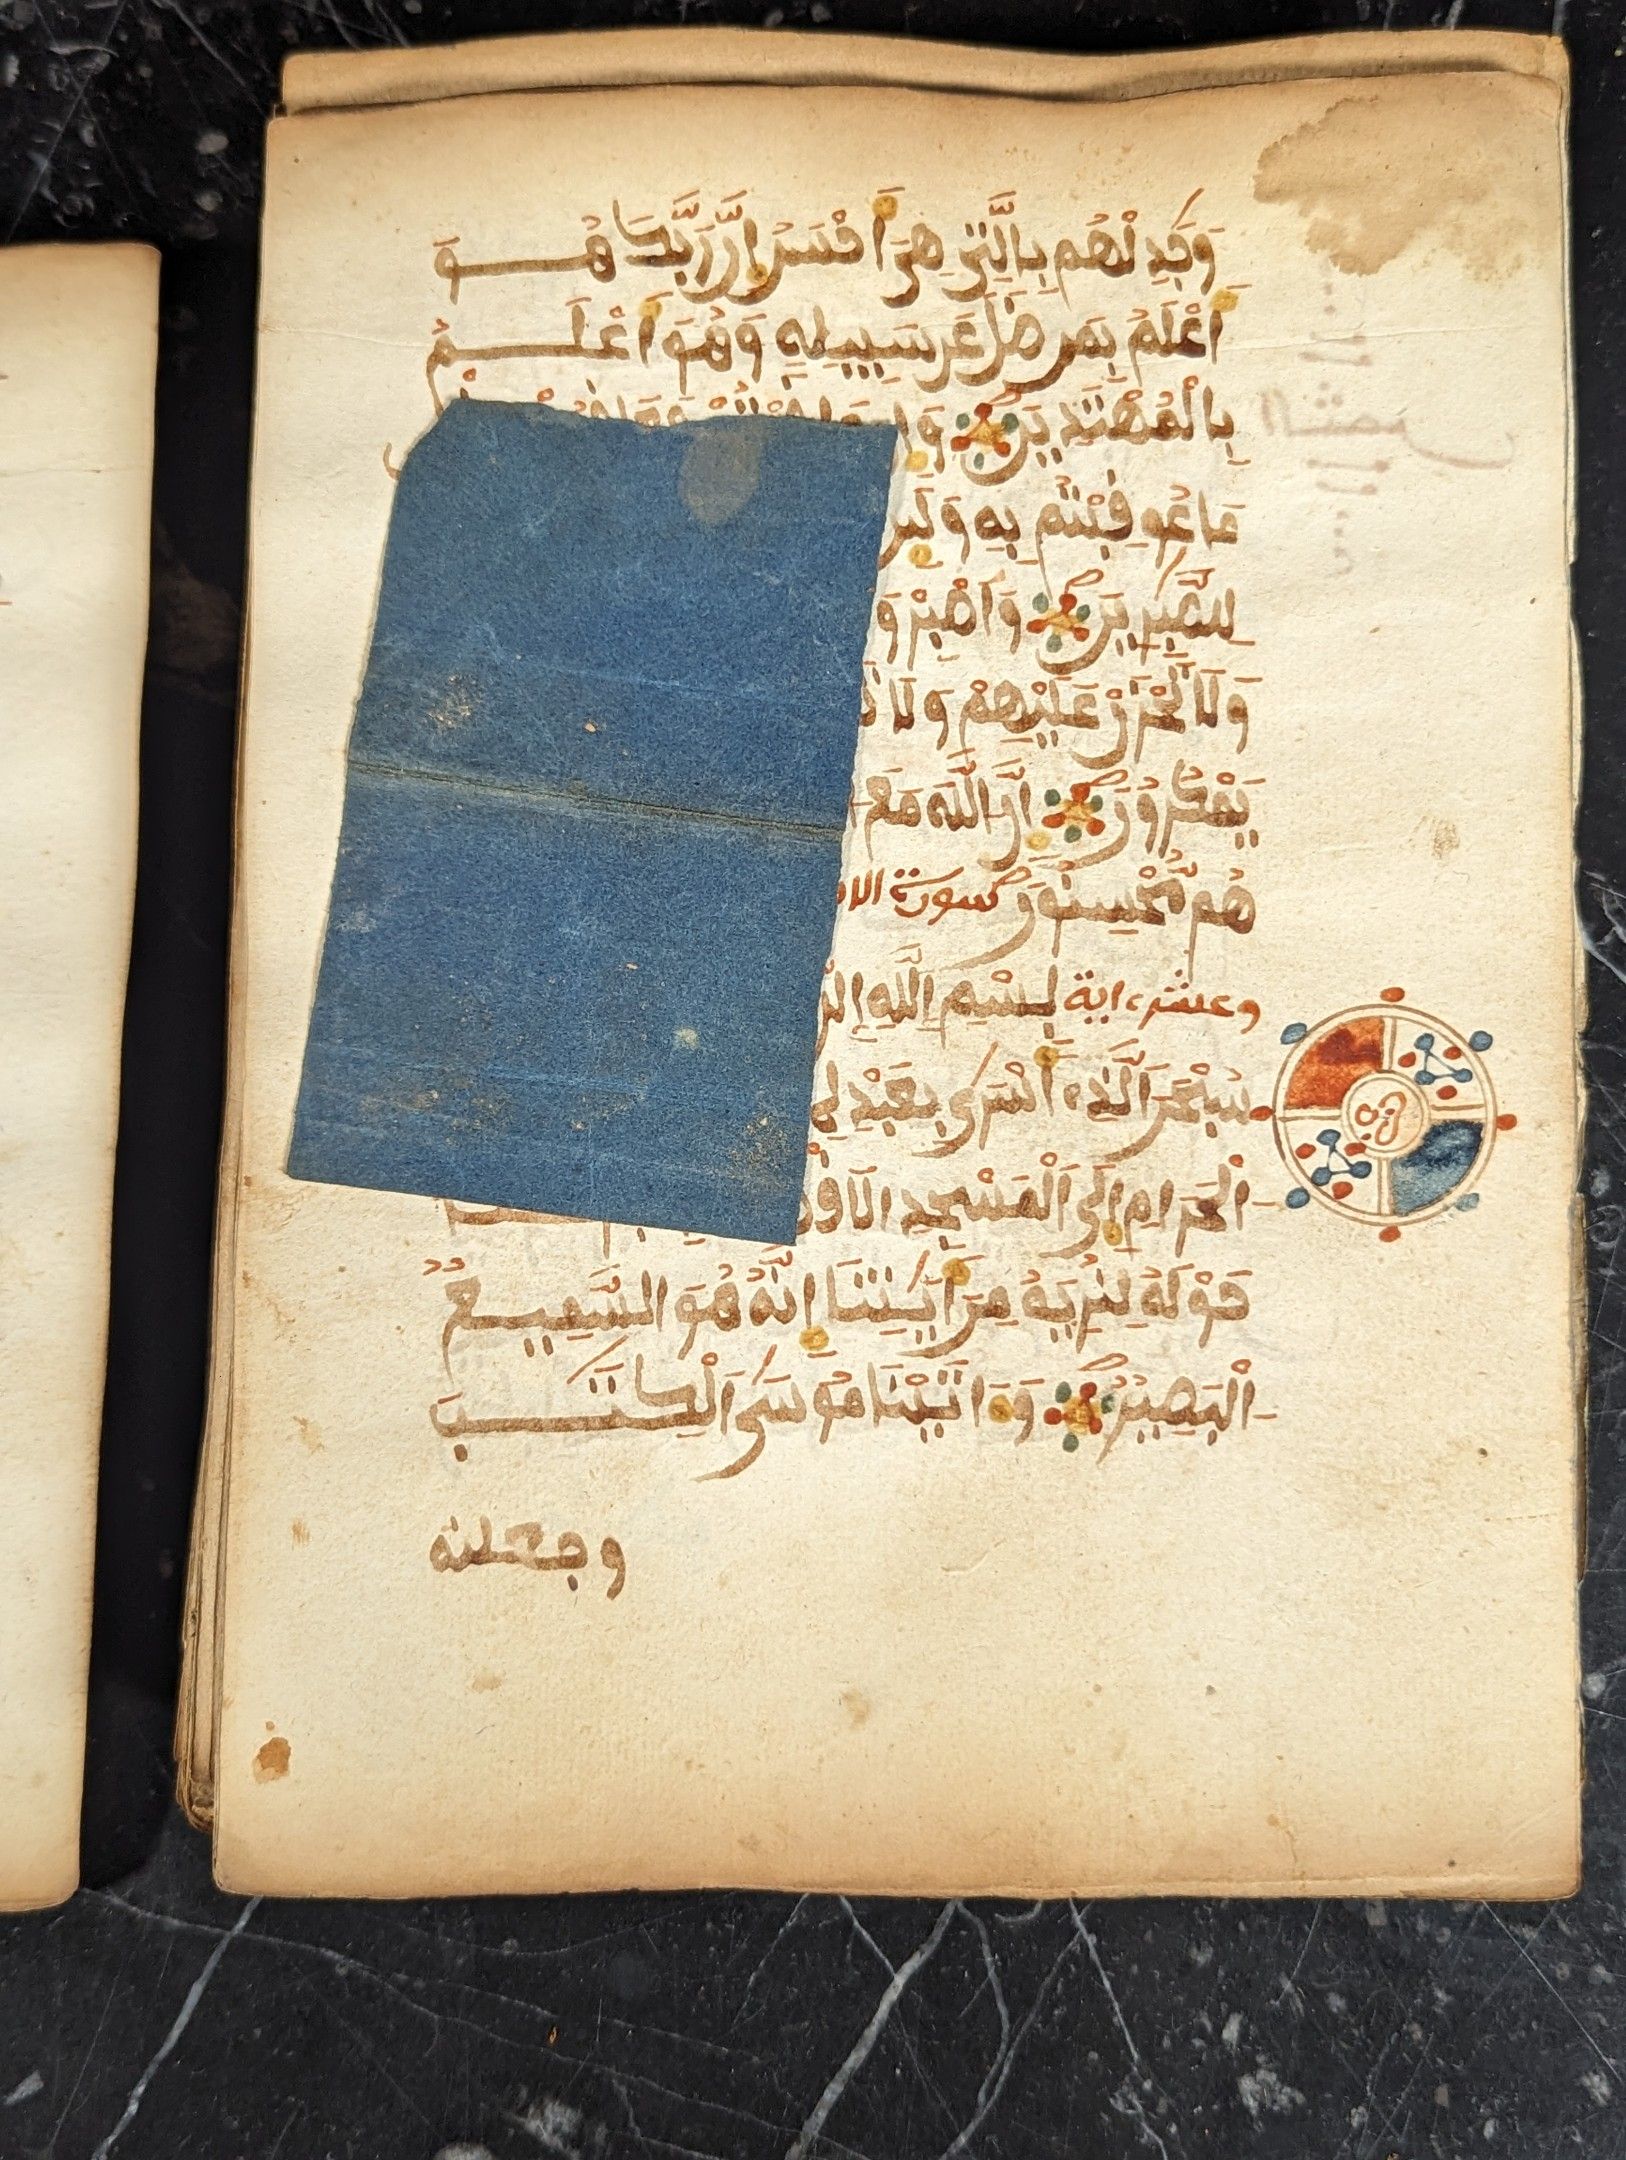 وَجَٰدِلْهُم بِالَّتِے هِىَ أَحْسَنُ إِنَّ رَبَّكَ هُوَ
أَعْلَمُ بِمَن ضَلَّ عَن سَبِيلِهِ وَهُوَ أَعْلَمُ
بِالْمُهْتَدِينَ
مَا عُوفِبْتُم بِهِ وَلَئِن
لِّلصَّٰبِرِينَ وَاصْبِرْ وَ
وَلَا تَحْزَنْ عَلَيْهِمْ وَلَا
يَمْكُرُونَ إِنَّ اللَّهَ مَعَ
هُم مُّحْسِنُونَ سورة
وعشر ءاية بِسْمِ اللَّهِ
سُبْحَٰنَ الَّذِے أَسْرَىٰ بِعَبْدِهِ
الْحَرَامِ إِلَى الْمَسْجِدِ
حَوْلَهُ لِنُرِيَهُ مِنَ ايَٰتِنَا إِنَّهُ هُوَ السَّمِيعُ
الْبَصِيرُ وَءَاتَيْنَا مُوسَى الْكِتَٰبَ
وجعلنه